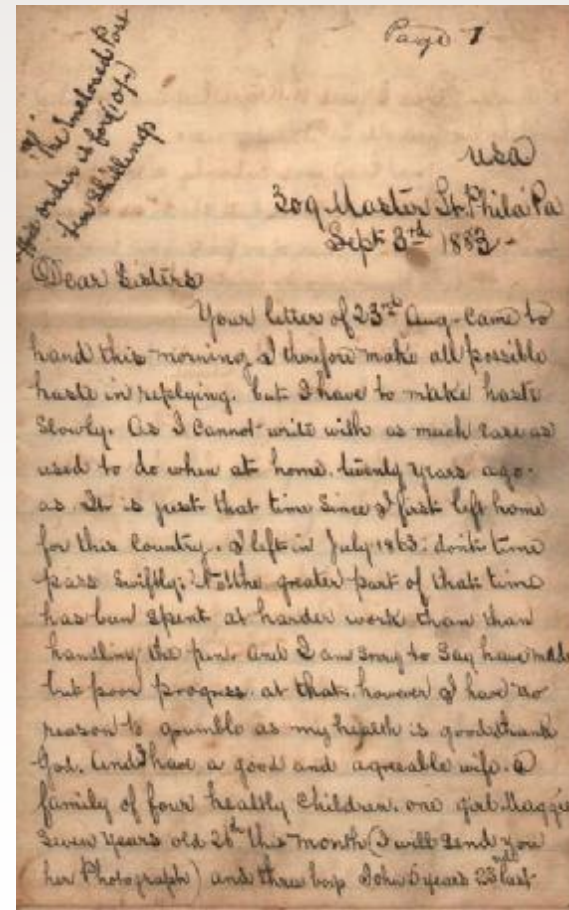 Page 1
The Enclosed Post
office order is for (10/-)
ten Shillings
USA
309 Master St. Phila Pa
Sept 3rd 1883-
Dear Sisters
Your letter of 23rd Aug- Came to
hand this morning, I therefore make all possible
haste in replying. but I have to make haste
Slowly. As I Cannot write with as much ease as
used to do when at home. twenty years ago-
as It is just that time Since I first left home
for this Country. I left in July 1863. don't time
pass Swiftly. the greater part of that time
has been Spent at harder work than than
handling the pen. And I am Sorry to Say have made
but poor progress. at that. however I have no
reason to grumble as my health is good, thank
God. And I have a good and agreeable wife. a
family of four healthy Children. one girl Maggie
Seven Years old 26th this month (I will Send you
her Photograph) and three boys John 5 years 23rd last